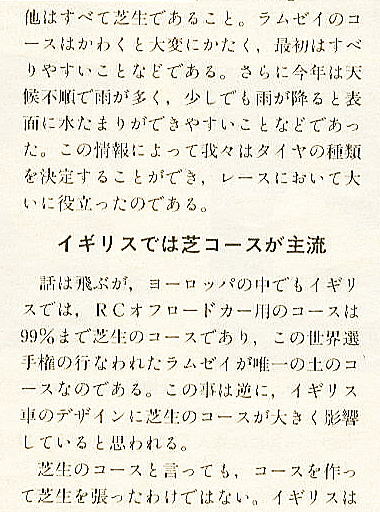 他はすべて芝生であること。ラムゼイのコ
ースはかわくと大変にかたく，最初はすべ
りやすいことなどである。さらに今年は天
候不順で雨が多く，少しでも雨が降ると表
面に水たまりができやすいことなどであっ
た。この情報によって我々はタイヤの種類
を決定することができ，レースにおいて大
いに役立ったのである。
イギリスでは芝コースが主流
話は飛ぶが，ヨーロッパの中でもイギリ
スでは，ＲＣオフロードカー用のコースは
99%まで芝生のコースであり，この世界選
手権の行なわれたラムゼイが唯一の土のコ
ースなのである。この事は逆に，イギリス
車のデザインに芝生のコースが大きく影響
していると思われる。
芝生のコースと言っても，コースを作っ
て芝生を張ったわけではない。イギリスは